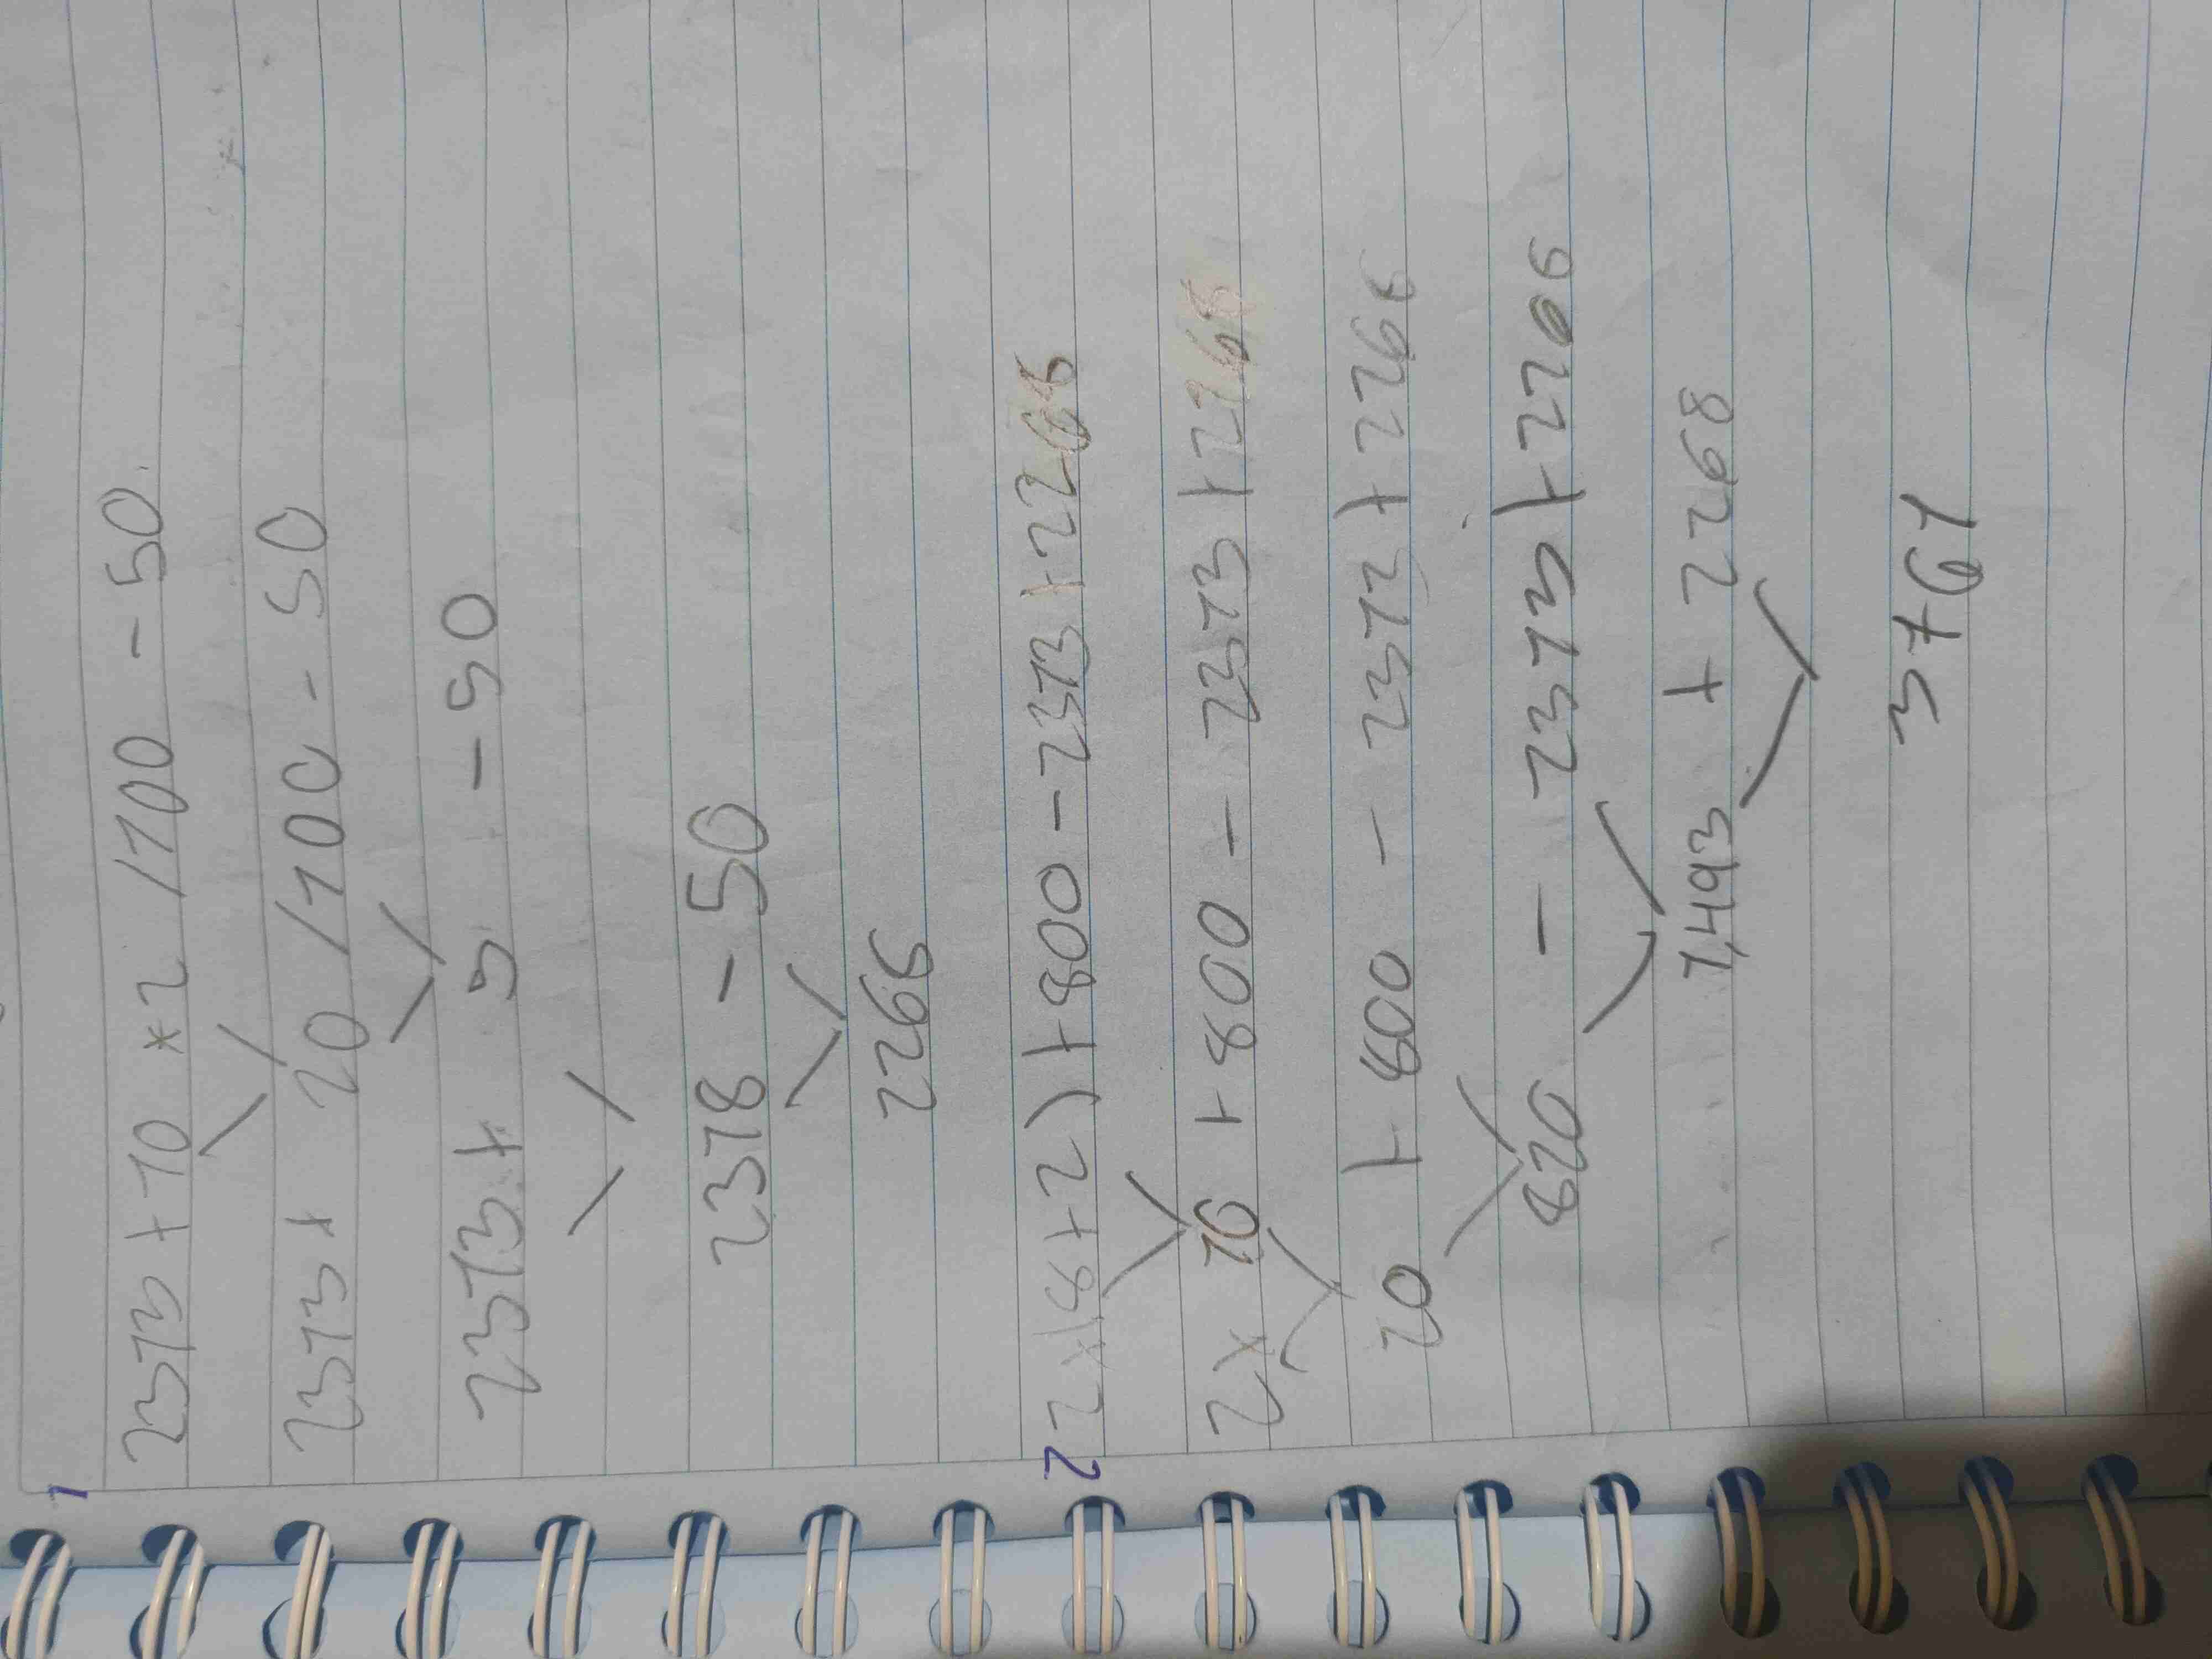 1
2313 + 10 * 2 / 100 - 50
2313 + 20 / 100 - 50
2313 + 5 - 50
2318 - 50
2268
2 2x(8+2)+800-2313+2268
2x 10 + 800 - 2313 + 2268
20 + 800 - 2313 + 2268
820 - 2313 + 2268
1,493 + 2268
3761